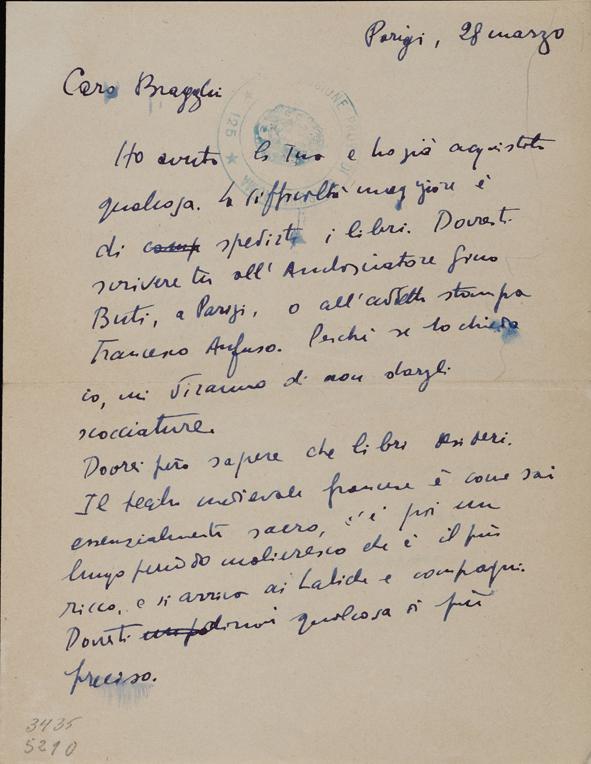 Parigi, 28 marzo
Caro Bragaglia
Ho avuto la Tua e ho già acquistato
qualcosa. La difficoltà maggiore è
di comp spedirti i libri. Dovresti
scrivere tu all'Ambasciatore Gino
Buti, a Parigi, o all'addetto stampa
Francesco Anfuso. Perché se lo chiedo
io, mi diranno di non dargli
scocciature.
Dovrei però sapere che libri desideri.
Il teatro medievale francese è come sai
essenzialmente sacro, c'è poi un
lungo periodo molieresco che è il più
ricco, e si arriva ai Labiche e compagni.
Dovresti dirmi qualcosa di più
preciso.
125
3435
5210